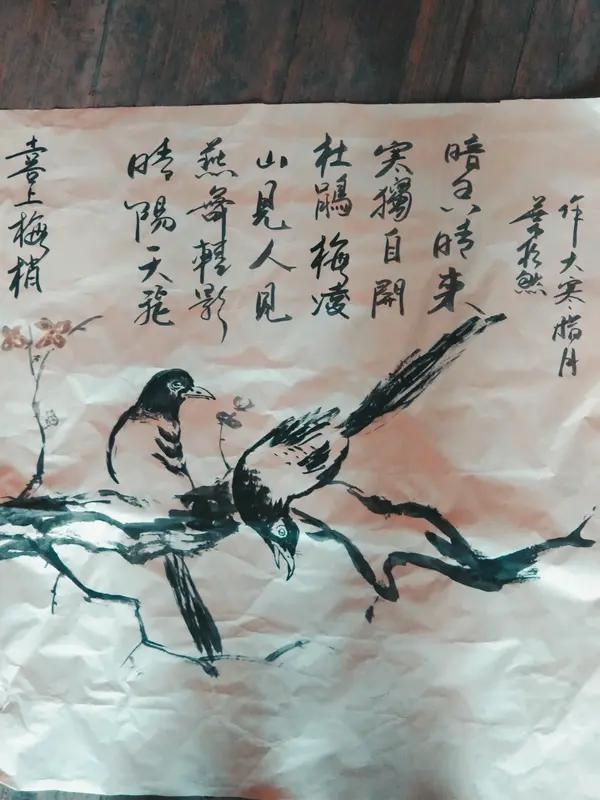 喜上梅梢
晴陽天飛
燕舞輕影
山見人見
杜鵑梅凌
寒獨自開
暗香時来
然
作大寒腊月